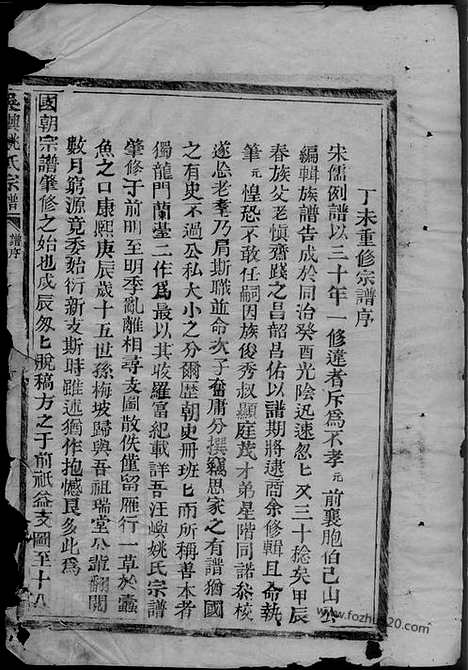 丁未重修宗譜序
宋儒例譜以三十年一修違者斥為不孝元前襄胞伯己山公
編輯族譜告成於同治癸酉光陰迅速忽匕又三十稔矣甲辰
春族父老慎齋踐之昌韶昌佑以譜期將逮商余修輯且命執
筆元惶恐不敢任嗣因族俊秀叔顯庭茂才弟星階同諾恭校
遂忘老耄乃肩斯職並命次子奮庸分撰竊思家之有譜猶國
之有史不過公私大小之分爾歷朝史冊班匕而所稱善本者
獨龍門蘭臺二作為最以其收羅富紀載詳吾汪嶼姚氏宗譜
肇修于前明至明季亂離相尋支圖散佚僅留雁行一草於蠹
魚之口康熙庚辰歲十五世孫梅坡歸與吾祖瑞堂公肆翻閱
數月窮源竟委始衍新支斯時雖述猶作抱憾良多此為
國朝宗譜肇修之始也戊辰匆匕脫稿方之于前祇益支圖至十八
吳興姚氏宗譜
譜序
www.fozhu920.com